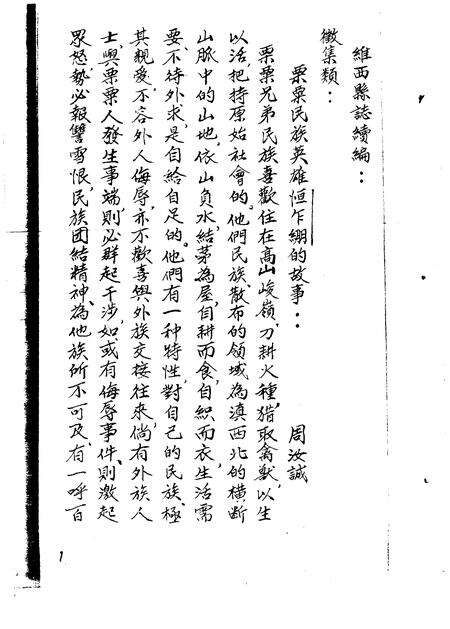 維西縣誌續編：
徵集類：
栗粟民族英雄恒乍綳的故事：
周汝誠
栗粟兄弟民族喜歡住在高山峻嶺，刀耕火種，猎取禽獸以生
以活，把持原始社會的。他們民族，散布的領域為滇西北的横断
山脈中的山地，依山負水，結茅為屋，自耕而食，自織而衣，生活需
要，不待外求，是自給自足的。他們有一种特性，對自己的民族極
其親愛，不容外人侮辱，亦不歡喜與外族交接往來，倘有外族人
士，與栗粟人發生事端，則必群起干涉，如或有侮辱事件，則激起
眾怒，勢必報讐雪恨，民族团結精神，為他族所不可及，有一呼百
1